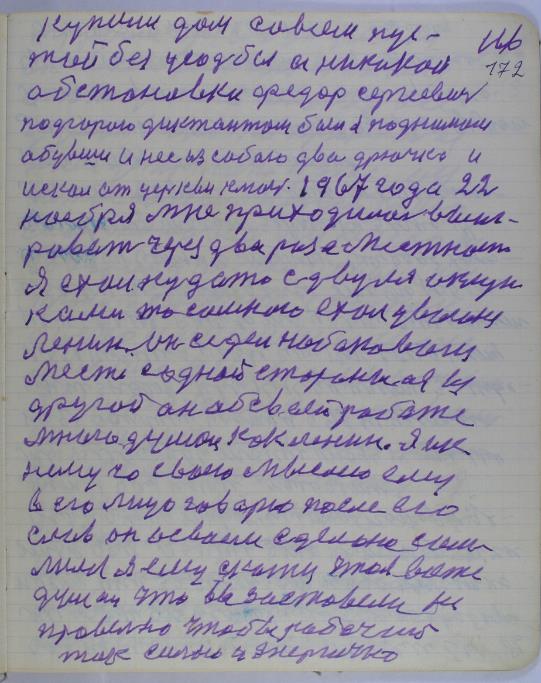 купили дом совсем пус-
той без усадбы и никакой
172
обстоновки федор сергеевич
под горою диктантом были я поднимал
обувши и нес из собою два дрючка и
искал от церкви ключ. 1967 года 22
ноября мне приходилось
ровать через два раза местност
я ехал куда то с двумя
ками то со мною ехал
Ленин. он седел на боковом
месте с одной стороны а я из
другой он об своей работе
много думал как ленин. Я к
нему со своею мыслею ему
в его лицо говорю после его
слов он осваем сделано
я ему скажу что я
думал что вы заставели не
провелно чтобы рабочий
так силно и енергично